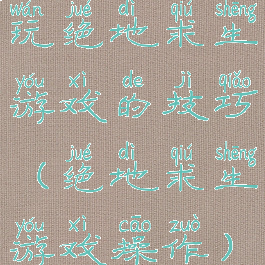 wán jué dì qiú shēng
玩绝地求生
yóu xì de jì qiǎo
游戏的技巧
jué dì qiú shēng
(绝地求生
yóu xì cāo zuò
游戏操作)